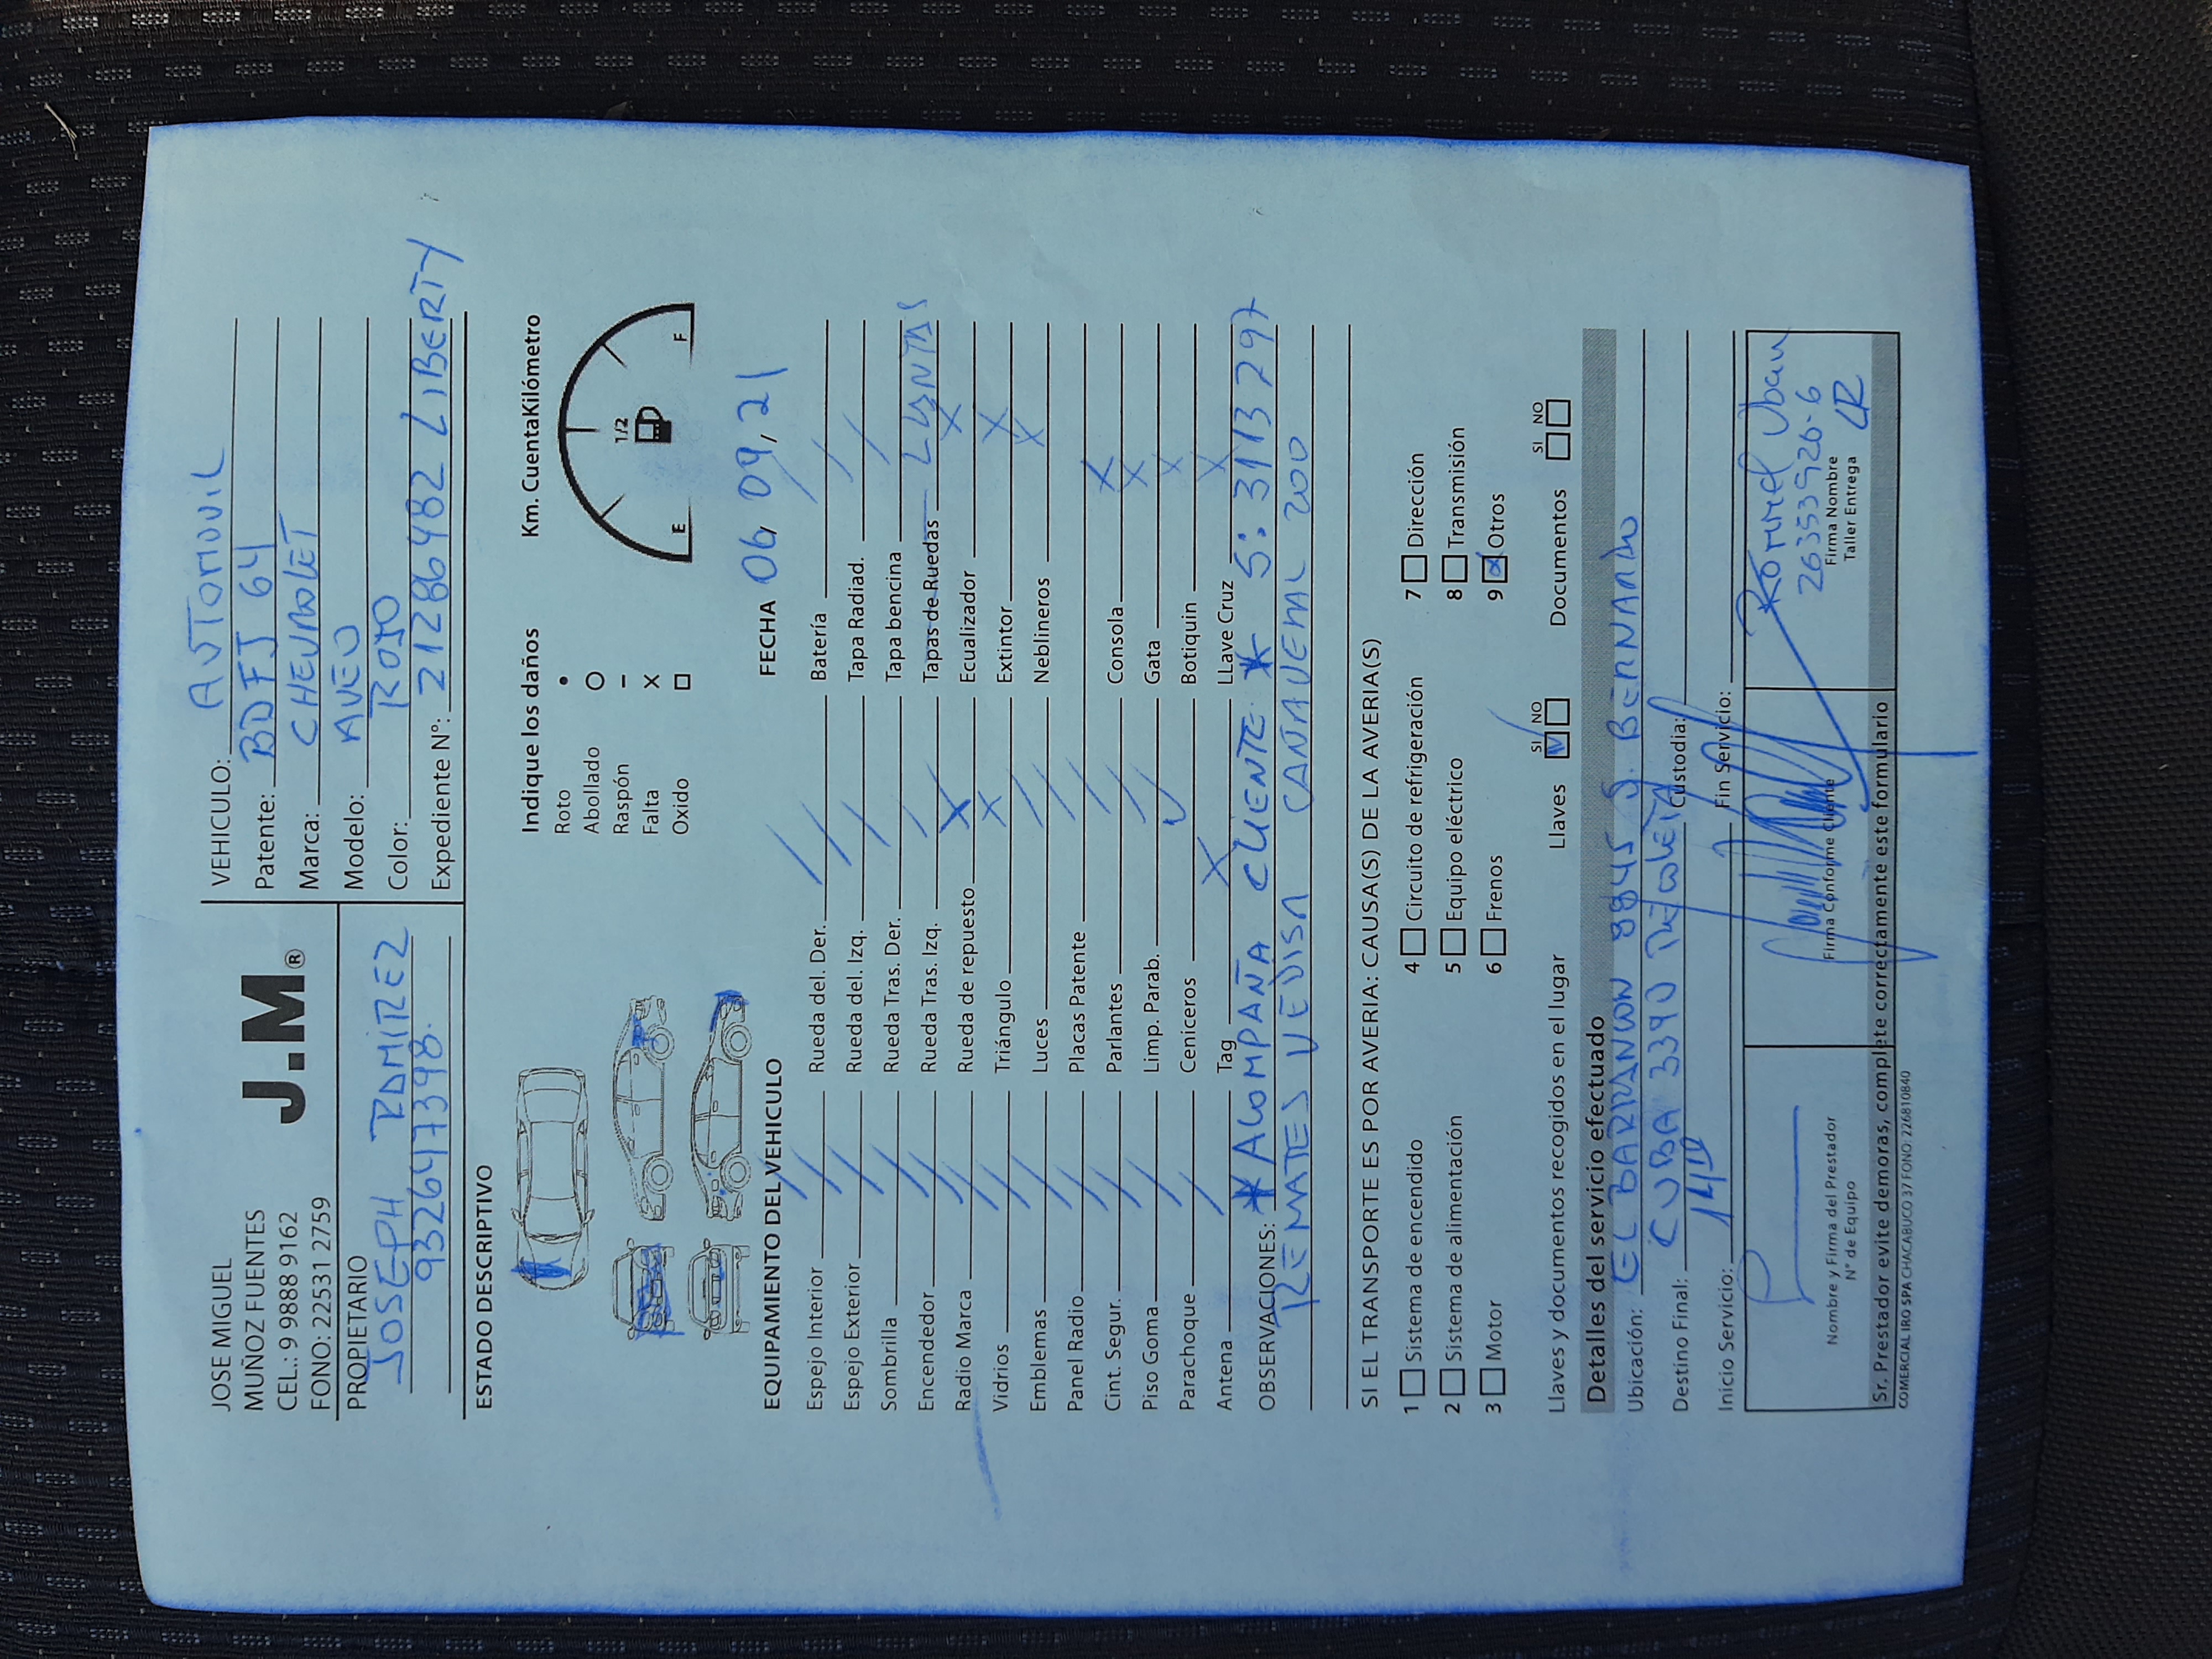 JOSE MIGUEL
MUÑOZ FUENTES
CEL.: 9 9888 9162
FONO: 22531 2759
J.M®
PROPIETARIO
JOSEPH RAMIREZ
932647398.
VEHICULO: AUTOMOVIL
Patente: BDFJ 64
Marca: CHEVROLET
Modelo: AVEO
Color: ROJO
Expediente N°: 212864482 LIBERTY
ESTADO DESCRIPTIVO
Indique los daños
Roto •
Abollado O
Raspón –
Falta x
Oxido □
Km. CuentaKilómetro
E 1/2 F
EQUIPAMIENTO DEL VEHICULO
FECHA 06, 09, 21
Espejo Interior // Rueda del. Der. // Batería /
Espejo Exterior // Rueda del. Izq. // Tapa Radiad. /
Sombrilla // Rueda Tras. Der. / Tapa bencina /
Encendedor // Rueda Tras. Izq. / Tapas de Ruedas LLANTAS
Radio Marca // Rueda de repuesto X Ecualizador X
Vidrios // Triángulo X Extintor X
Emblemas // Luces // Neblineros X
Panel Radio // Placas Patente //
Cint. Segur. // Parlantes // Consola X
Piso Goma // Limp. Parab. // Gata X
Parachoque / Ceniceros ✓ Botiquin X
Antena / Tag X LLave Cruz X
OBSERVACIONES: * ACOMPAÑA CLIENTE * S: 3113297
REMATES VEDISA CANAVERAL 200
SI EL TRANSPORTE ES POR AVERIA: CAUSA(S) DE LA AVERIA(S)
1 □ Sistema de encendido 4 □ Circuito de refrigeración 7 □ Dirección
2 □ Sistema de alimentación 5 □ Equipo eléctrico 8 □ Transmisión
3 □ Motor 6 □ Frenos 9 ☒ Otros
Llaves y documentos recogidos en el lugar Llaves SI ☑ NO □ Documentos SI □ NO □
Detalles del servicio efectuado
Ubicación: EL BARRANCON 8845 S. BERNARDO
Destino Final: CUBA 3390 Custodia:
Inicio Servicio: Fin Servicio:
Nombre y Firma del Prestador
N° de Equipo
Firma Conforme Cliente
26353926-6
Firma Nombre
Taller Entrega
Sr. Prestador evite demoras, complete correctamente este formulario
COMERCIAL IRO SPA CHACABUCO 37 FONO: 226810840